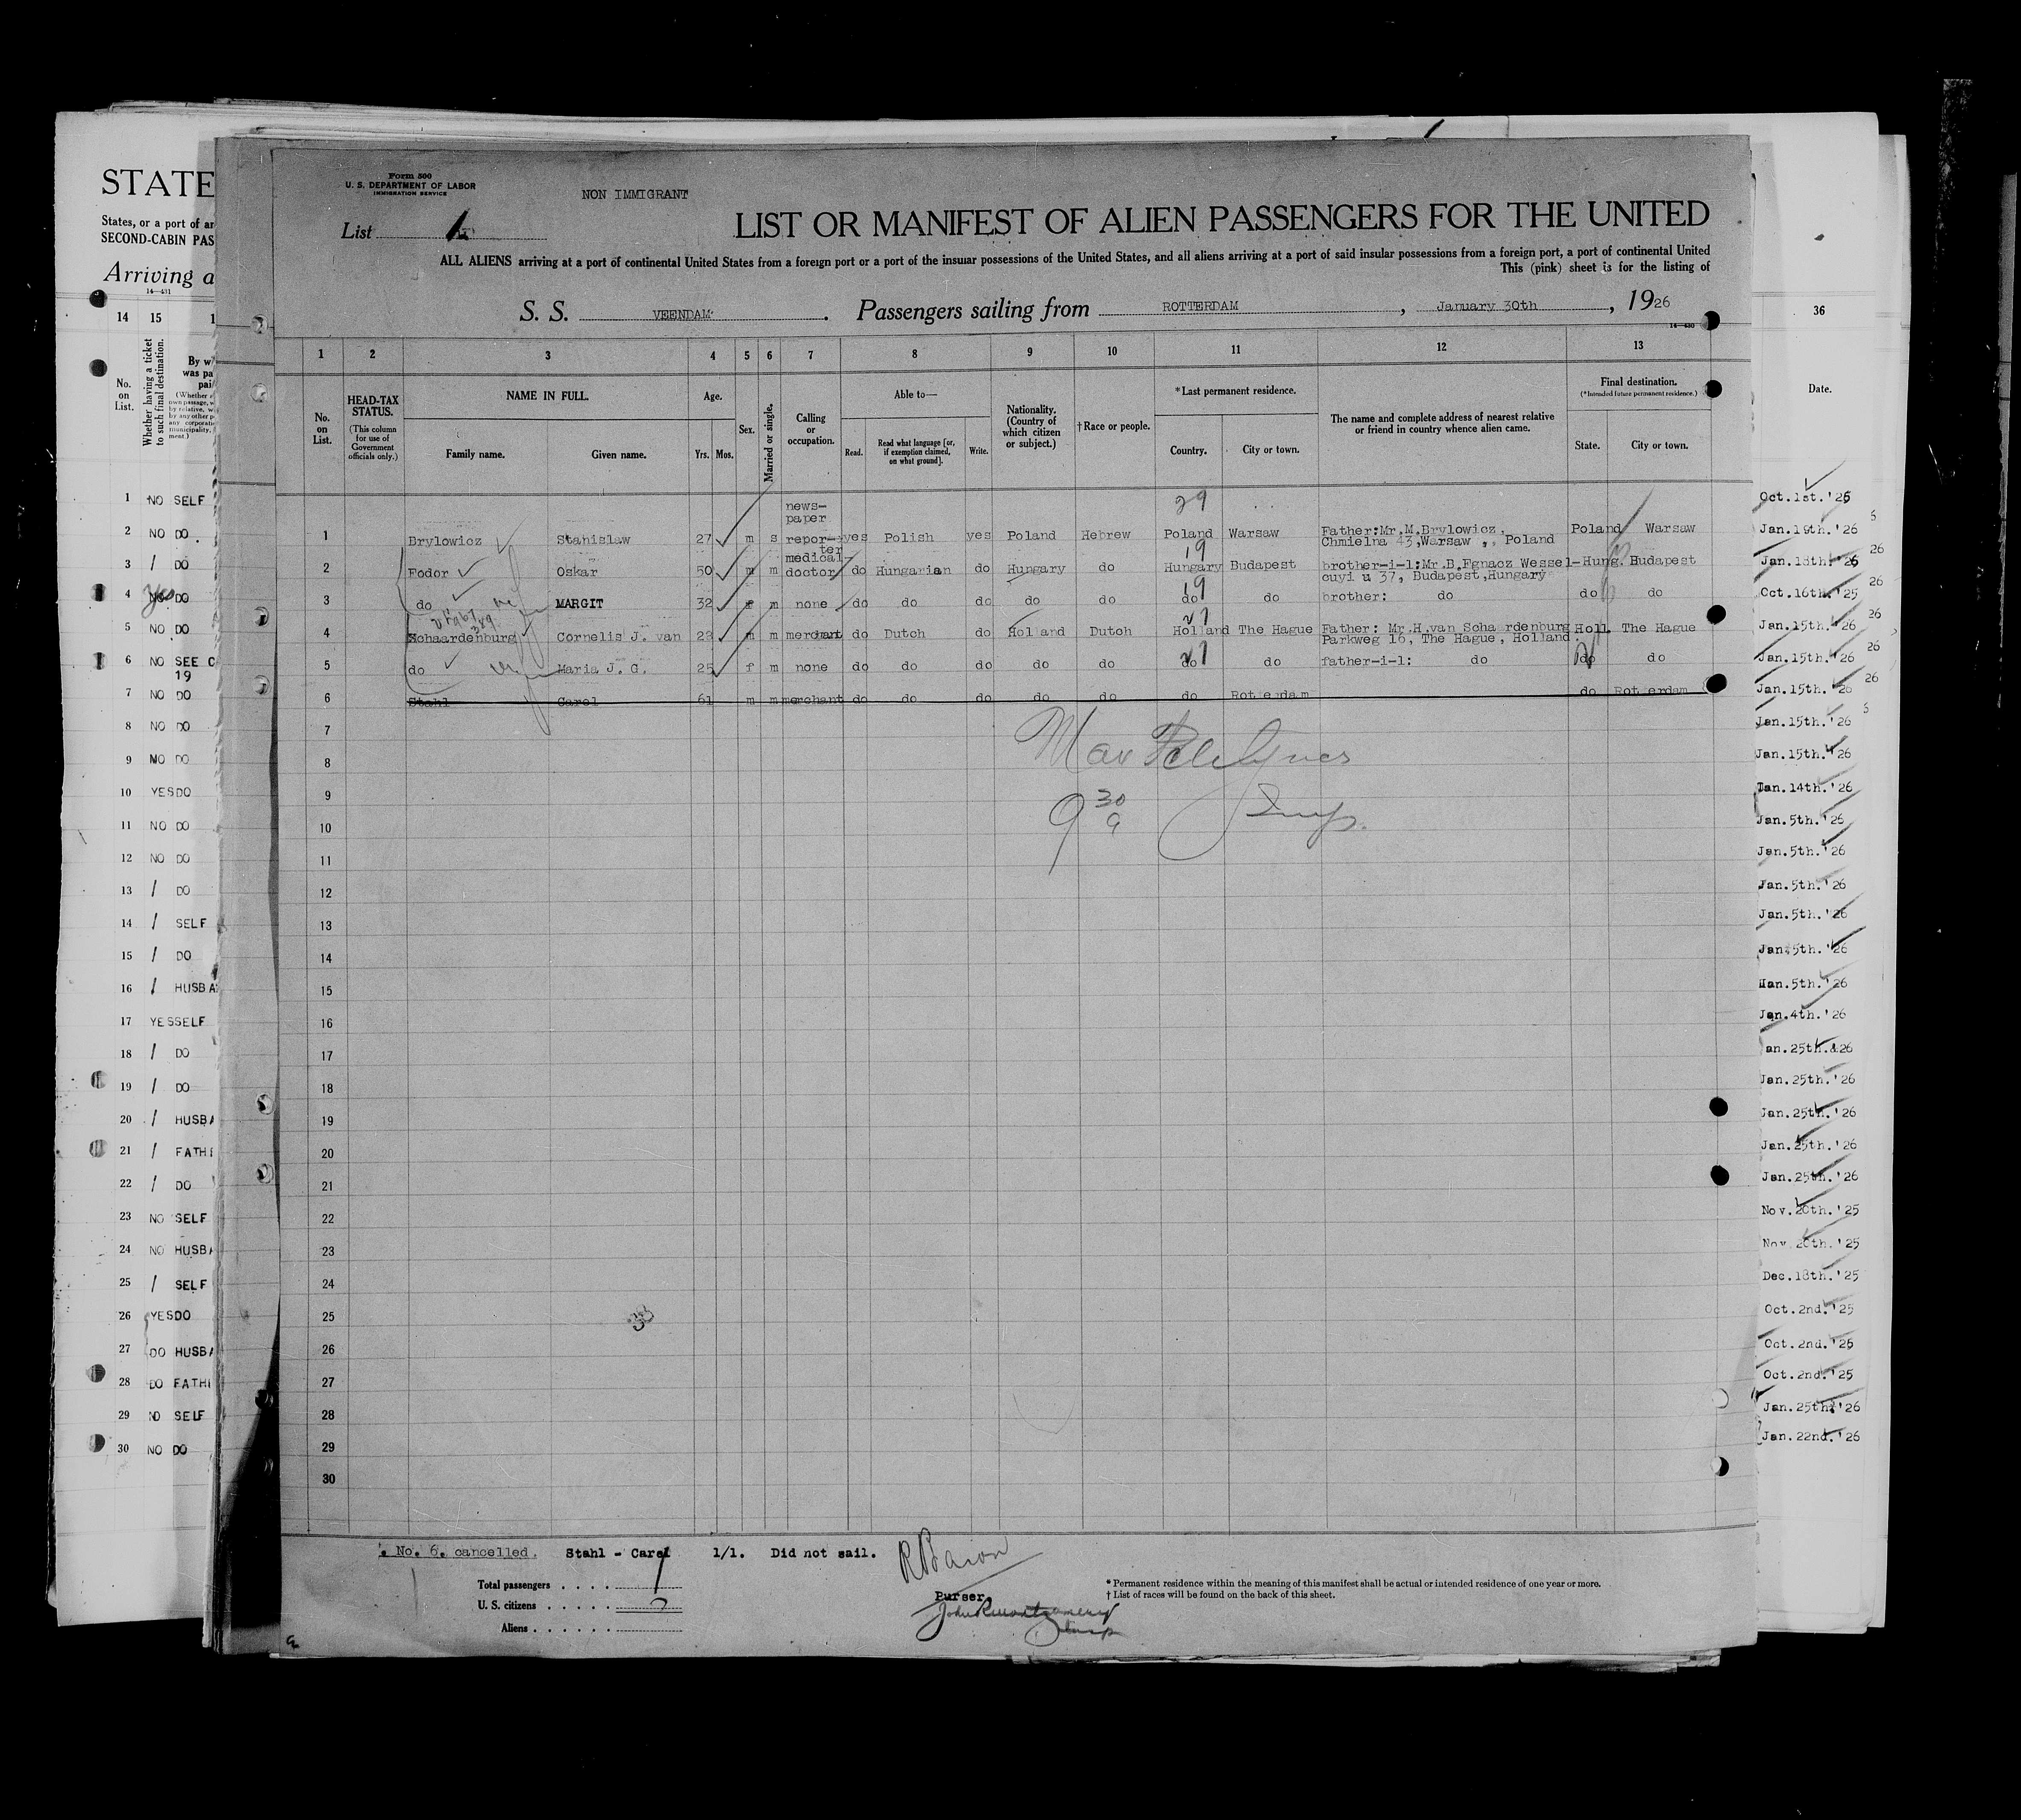 STATE
States, or a port of an
SECOND-CABIN PAS
Arriving a
14—431
14 15
No. on List.
Whether having a ticket to such final destination.
1 NO SELF
2 NO DO
3 / DO
4 Yes DO
5 NO DO
6 NO SEE C
19
7 NO DO
8 NO DO
9 NO DO
10 YES DO
11 NO DO
12 NO DO
13 / DO
14 / SELF
15 / DO
16 / HUSBA
17 YES SELF
18 / DO
19 / DO
20 / HUSBA
21 / FATHE
22 / DO
23 NO SELF
24 NO HUSBA
25 / SELF
26 YES DO
27 DO HUSBA
28 DO FATHE
29 NO SELF
30 NO DO
Form 500
U. S. DEPARTMENT OF LABOR
IMMIGRATION SERVICE
NON IMMIGRANT
List 1
LIST OR MANIFEST OF ALIEN PASSENGERS FOR THE UNITED
ALL ALIENS arriving at a port of continental United States from a foreign port or a port of the insuar possessions of the United States, and all aliens arriving at a port of said insular possessions from a foreign port, a port of continental United
This (pink) sheet is for the listing of
S. S. VEENDAM. Passengers sailing from ROTTERDAM, January 30th, 1926
14—430
1 2 3 4 5 6 7 8 9 10 11 12 13
No. on List.
HEAD-TAX STATUS.
(This column for use of Government officials only.)
NAME IN FULL.
Family name. Given name.
Age.
Yrs. Mos.
Sex.
Married or single.
Calling or occupation.
Able to—
Read. Read what language [or, if exemption claimed, on what ground]. Write.
Nationality. (Country of which citizen or subject.)
†Race or people.
*Last permanent residence.
Country. City or town.
The name and complete address of nearest relative or friend in country whence alien came.
Final destination.
(*Intended future permanent residence.)
State. City or town.
29
1 Brylowicz Stanislaw 27 m s news-paper repor-ter yes Polish yes Poland Hebrew Poland Warsaw Father:Mr.M.Brylowicz, Chmielna 43,Warsaw , Poland Poland Warsaw
19
2 Fodor Oskar 50 m m medical doctor do Hungarian do Hungary do Hungary Budapest brother-i-l:Mr.B.Fgnacz Wessel-cuyi u 37, Budapest,Hungary Hung. Budapest
19
3 do MARGIT 32 f m none do do do do do do do brother: do do do
27
4 Schaardenburg Cornelis J. van 28 m m merchant do Dutch do Holland Dutch Holland The Hague Father: Mr.H.van Schaardenburg Parkweg 16, The Hague, Holland. Holl. The Hague
27
5 do Maria J. G. 25 f m none do do do do do do do father-i-l: do do do
6 Stahl Carel 61 m m merchant do do do do do do Rotterdam do Rotterdam
7
8
9
10
9 30
9
Insp.
11
12
13
14
15
16
17
18
19
20
21
22
23
24
25
38
26
27
28
29
30
. No. 6. cancelled. Stahl - Carel 1/1. Did not sail.
Total passengers
U. S. citizens
Aliens
Purser
* Permanent residence within the meaning of this manifest shall be actual or intended residence of one year or more.
† List of races will be found on the back of this sheet.
36
Date.
Oct.1st.'25
Jan.19th.'26
Jan.18th.'26
Oct.16th.'25
Jan.15th.'26
Jan.15th.'26
Jan.15th.'26
Jan.15th.'26
Jan.15th.'26
Jan.14th.'26
Jan.5th.'26
Jan.5th.'26
Jan.5th.'26
Jan.5th.'26
Jan.5th.'26
Jan.5th.'26
Jan.4th.'26
an.25th.&26
Jan.25th.'26
Jan.25th.'26
Jan.25th.'26
Jan.25th.'26
Nov.20th.'25
Nov.20th.'25
Dec.18th.'25
Oct.2nd.'25
Oct.2nd.'25
Oct.2nd.'25
Jan.25th.'26
Jan.22nd.'26